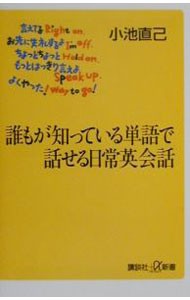 小池直己
言えてる Right on.
お先に失礼するよ I'm off.
ちょっとちょっと Hold on.
もっとはっきり言えよ
Speak up.
よくやった! Way to go!
誰もが知っている単語で
話せる日常英会話
講談社+α新書